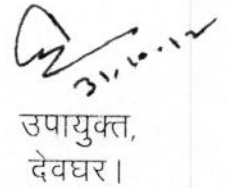 31.10.12
उपायुक्त,
देवघर।